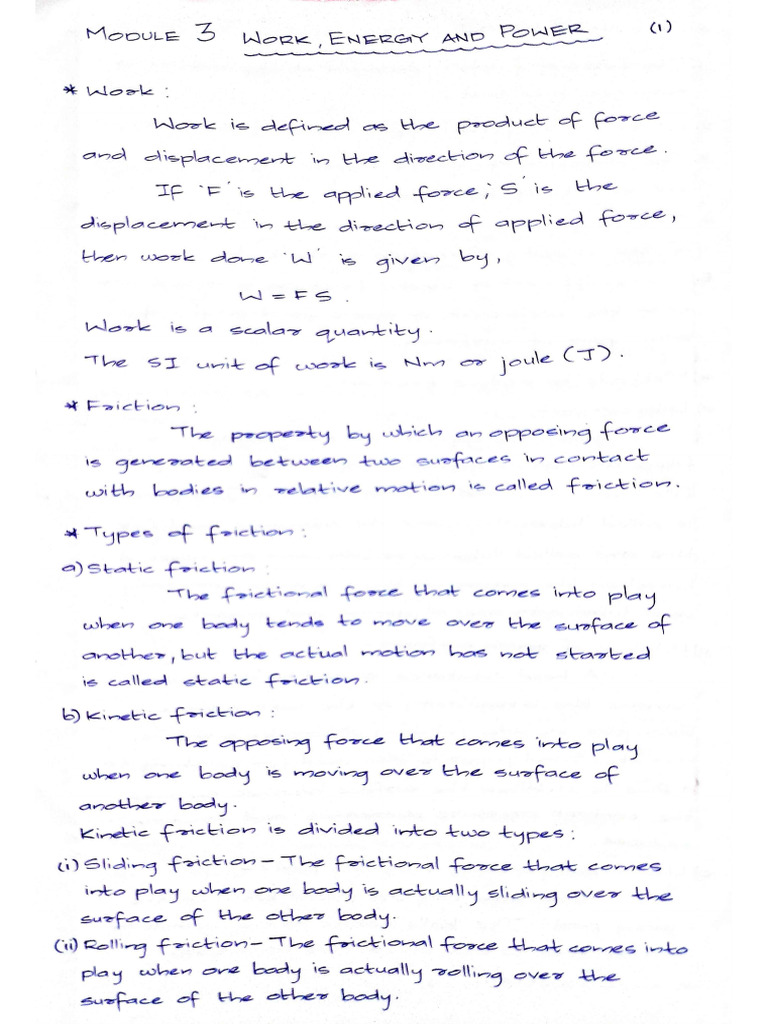 MODULE 3 WORK, ENERGY AND POWER (1)
* Work :
Work is defined as the product of force
and displacement in the direction of the force.
If 'F' is the applied force; 'S' is the
displacement in the direction of applied force,
then work done 'W' is given by,
W = FS.
Work is a scalar quantity.
The SI unit of work is Nm or joule (J).
* Friction :
The property by which an opposing force
is generated between two surfaces in contact
with bodies in relative motion is called friction.
* Types of friction :
a) Static friction :
The frictional force that comes into play
when one body tends to move over the surface of
another, but the actual motion has not started
is called static friction.
b) Kinetic friction :
The opposing force that comes into play
when one body is moving over the surface of
another body.
Kinetic friction is divided into two types :
(i) Sliding friction – The frictional force that comes
into play when one body is actually sliding over the
surface of the other body.
(ii) Rolling friction – The frictional force that comes into
play when one body is actually rolling over the
surface of the other body.